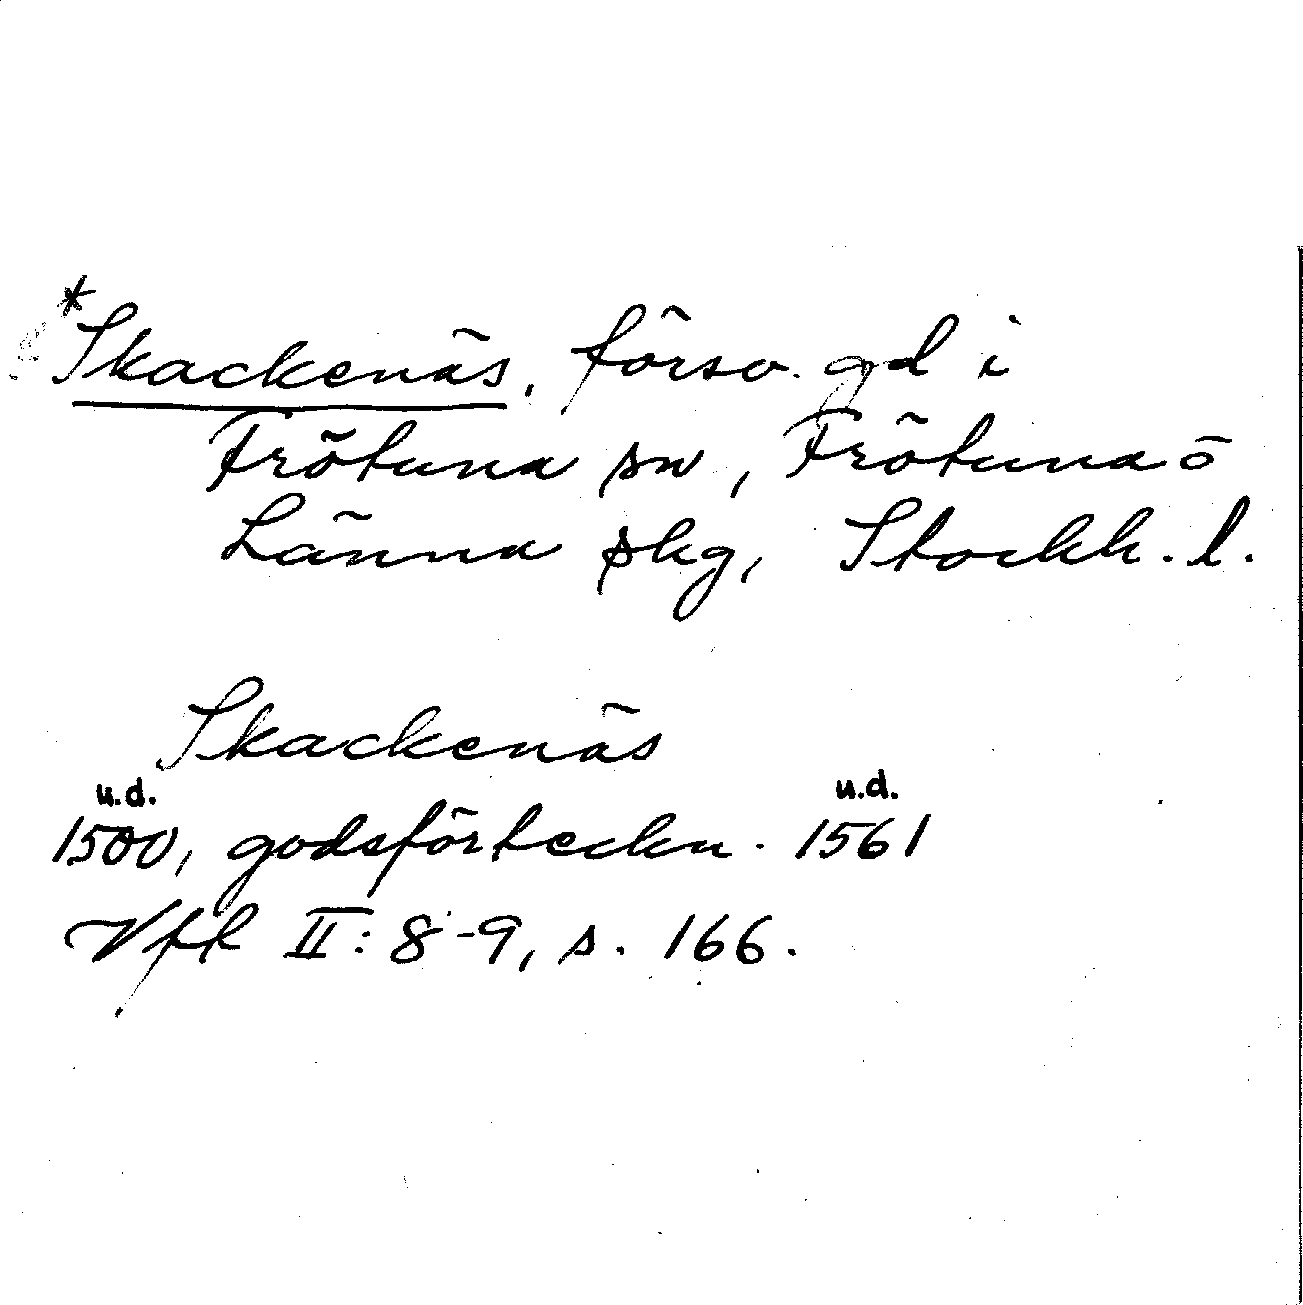 *Skackenäs, försv. gd i
Frötuna sn, Frötuna o
Länna skg, Stockh. l.
Skackenäs
u.d. u.d.
1500, godsförteckn. 1561
II: 8-9, s. 166.